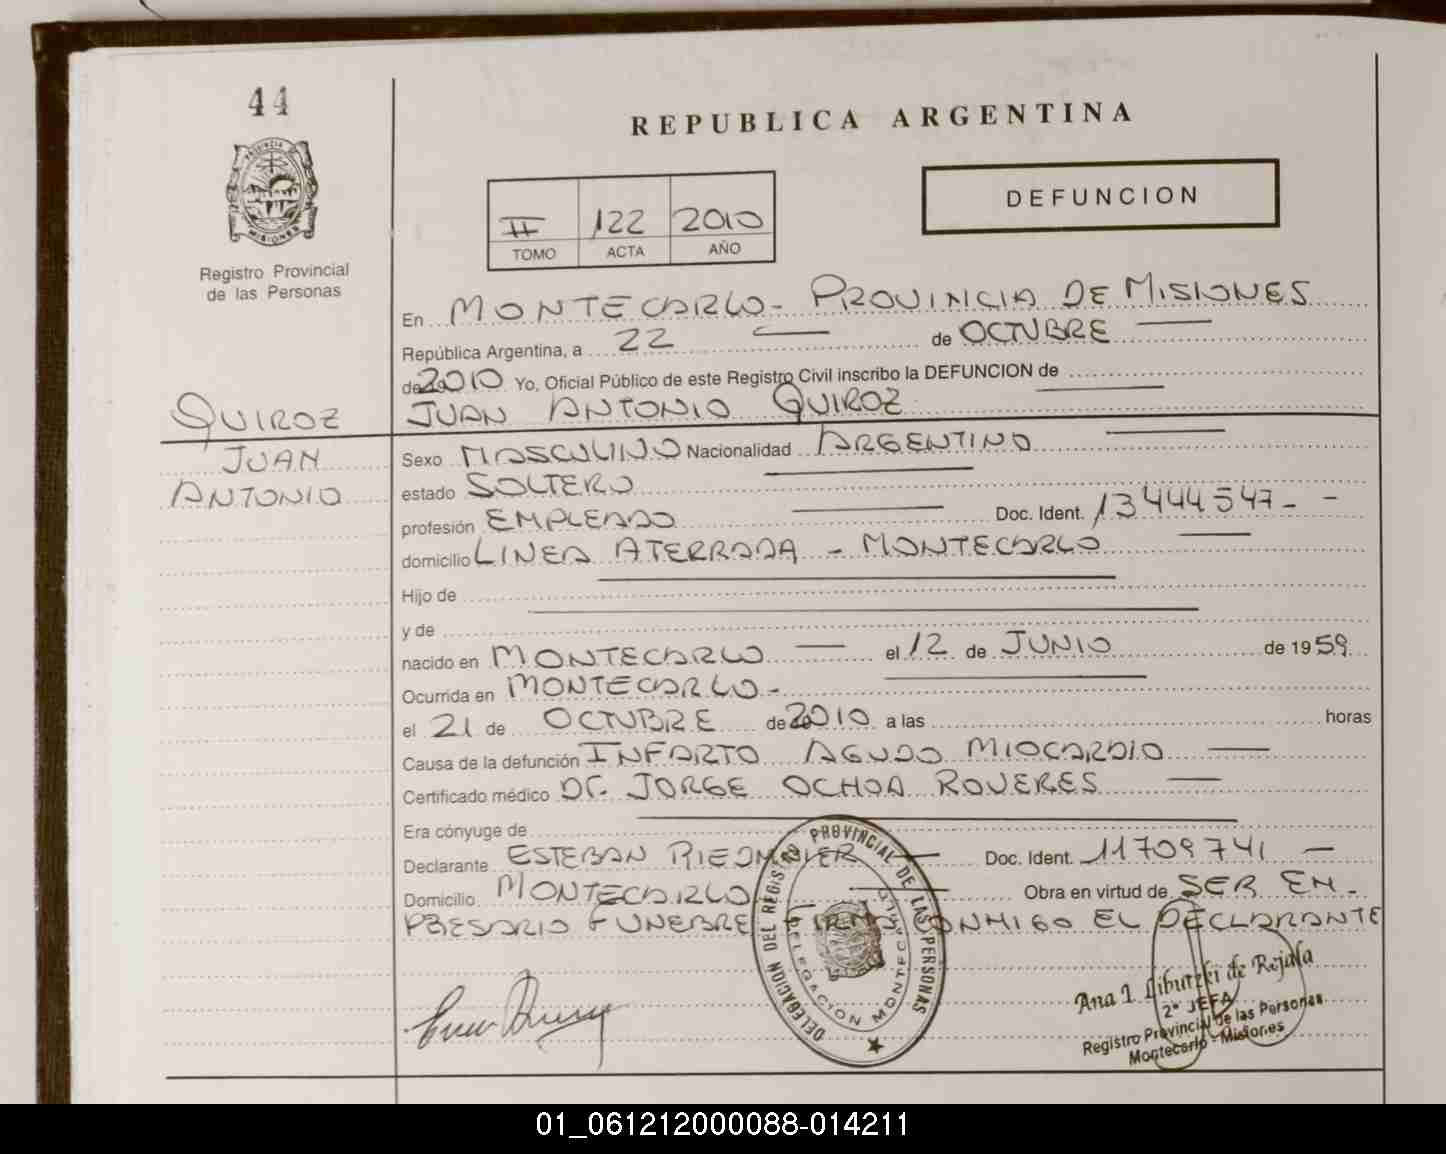 44
PROVINCIA
MISIONES
Registro Provincial
de las Personas
REPUBLICA ARGENTINA
II 122 2010
TOMO ACTA AÑO
DEFUNCION
En MONTECARLO - PROVINCIA DE MISIONES
República Argentina, a 22 de OCTUBRE
de 2010 Yo, Oficial Público de este Registro Civil inscribo la DEFUNCION de
QUIROZ JUAN ANTONIO QUIROZ
JUAN
ANTONIO
Sexo MASCULINO Nacionalidad ARGENTINO
estado SOLTERO
profesión EMPLEADO Doc. Ident. 13444547 - -
domicilio LINEA ATERRADA - MONTECARLO
Hijo de
y de
nacido en MONTECARLO el 12 de JUNIO de 1959
Ocurrida en MONTECARLO -
el 21 de OCTUBRE de 2010 a las horas
Causa de la defunción INFARTO AGUDO MIOCARDIO
Certificado médico Dr. JORGE OCHOA ROVERES
Era cónyuge de
Declarante ESTEBAN RIEDMAIER Doc. Ident. 11709741 -
Domicilio MONTECARLO Obra en virtud de SER EM-
PRESARIO FUNEBRE FIRMA CONMIGO EL DECLARANTE
DELEGACION DEL REGISTRO PROVINCIAL DE LAS PERSONAS
DELEGACION MONTECARLO
Ana I. de Rejala
2° JEFA
Registro Provincial de las Personas
Montecarlo - Misiones
01_061212000088-014211